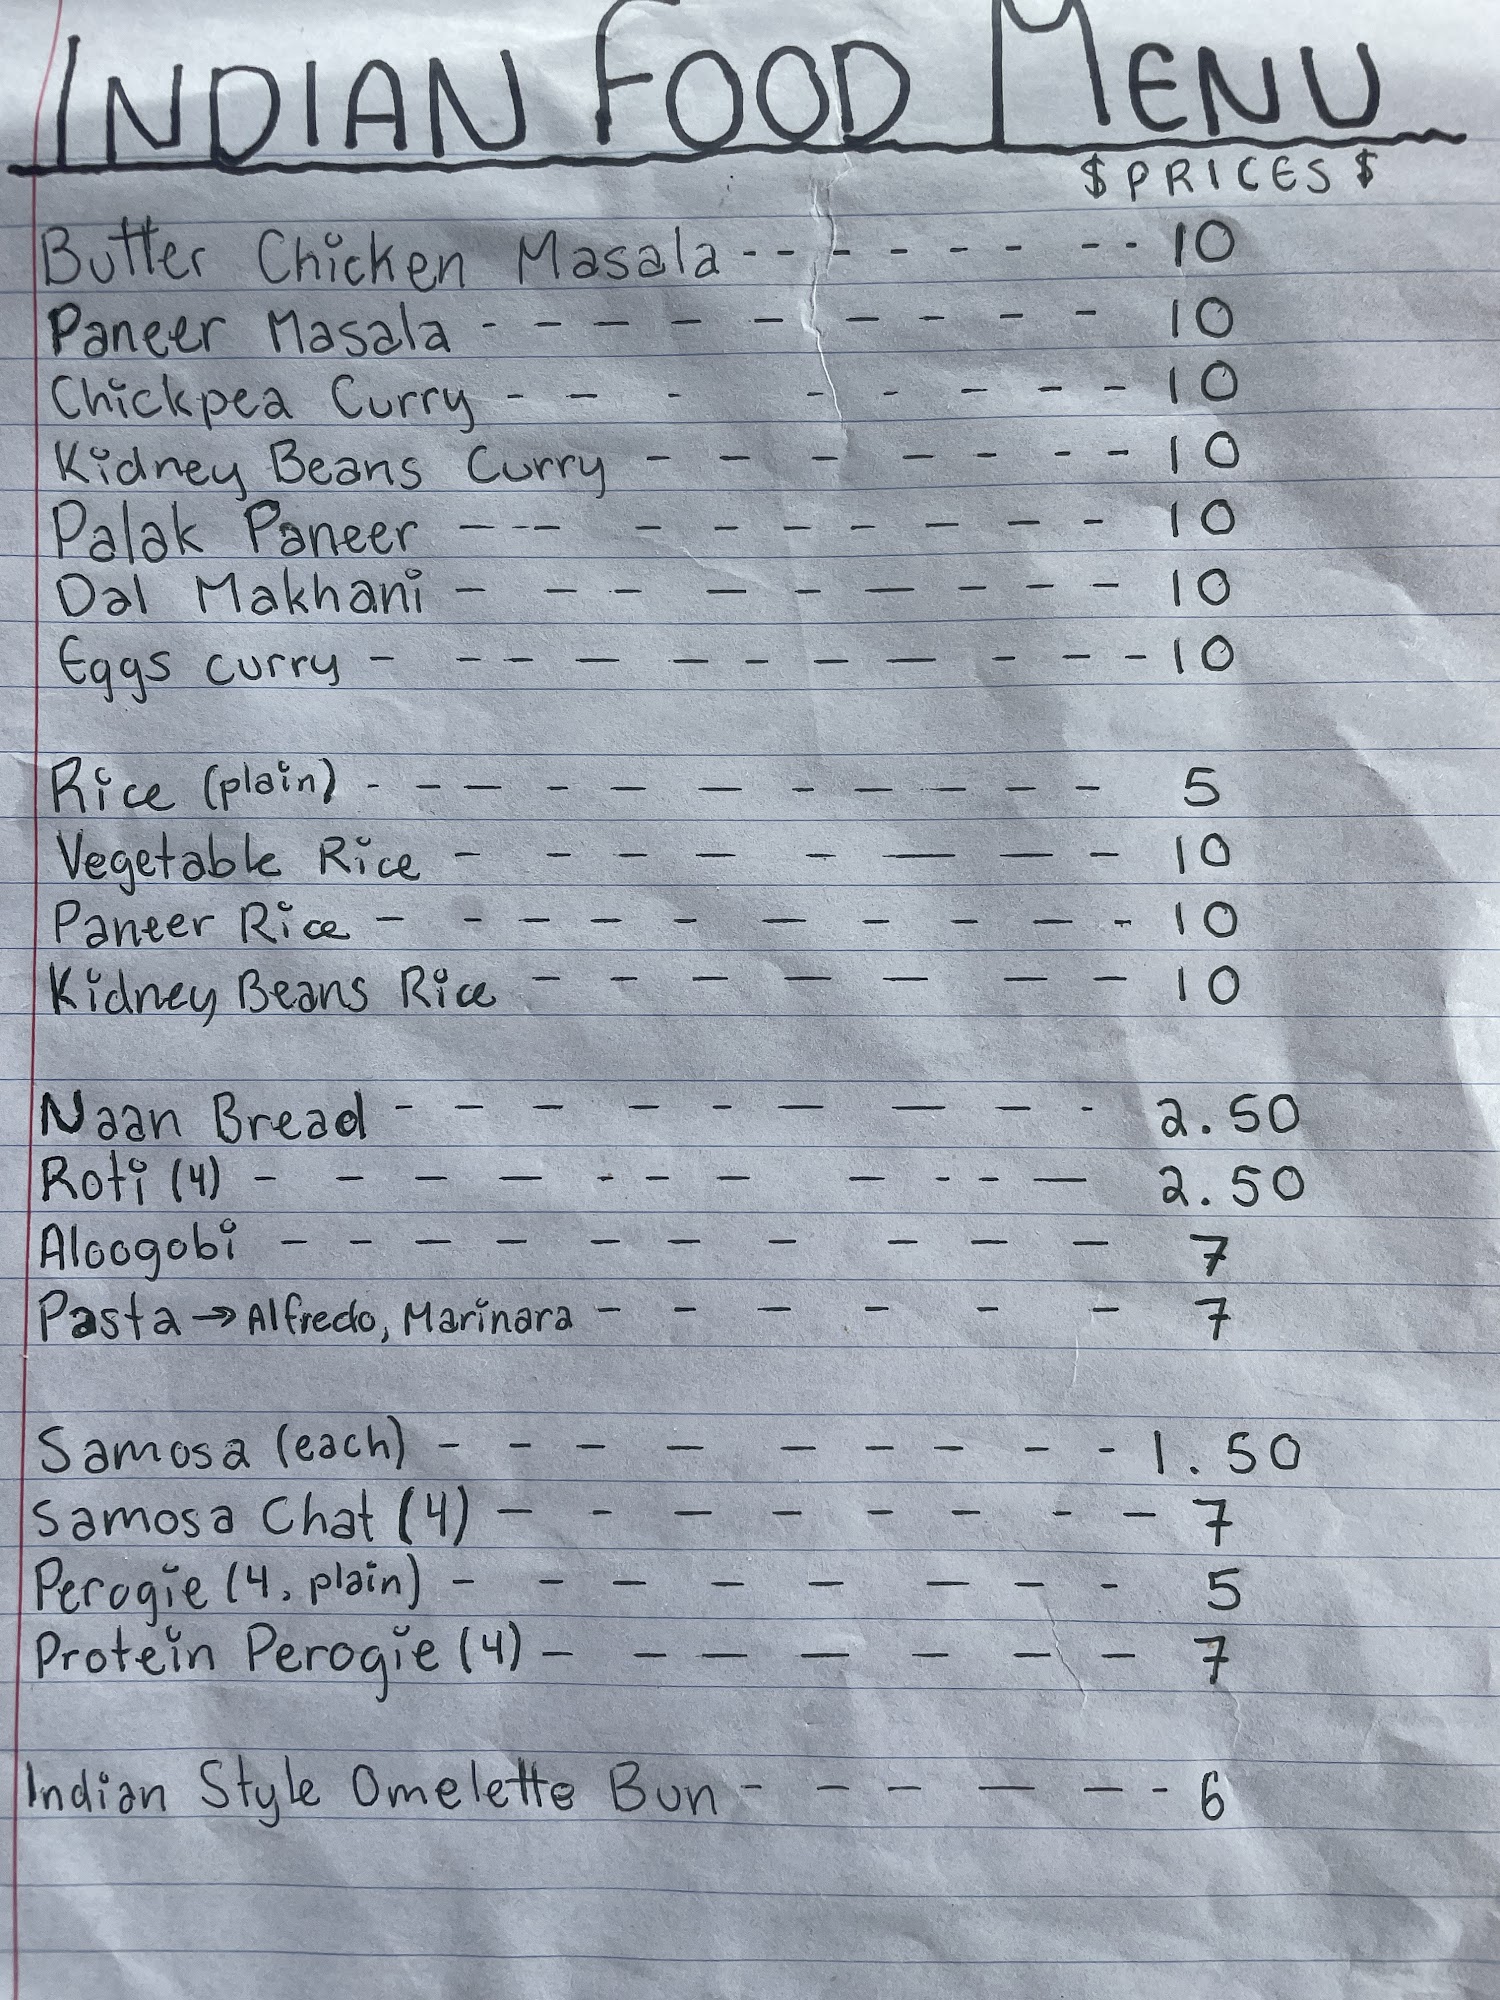 INDIAN FOOD MENU
$ PRICES $
Butter Chicken Masala - - - - - - - - 10
Paneer Masala - - - - - - - - - 10
Chickpea Curry - - - - - - - - 10
Kidney Beans Curry - - - - - - - - 10
Palak Paneer - - - - - - - - - - 10
Dal Makhani - - - - - - - - - 10
Eggs curry - - - - - - - - - - - - 10
Rice (plain) - - - - - - - - - - - 5
Vegetable Rice - - - - - - - - 10
Paneer Rice - - - - - - - - - - 10
Kidney Beans Rice - - - - - - - 10
Naan Bread - - - - - - - - - 2.50
Roti (4) - - - - - - - - - - - 2.50
Aloogobi - - - - - - - - - - 7
Pasta → Alfredo, Marinara - - - - - - 7
Samosa (each) - - - - - - - - - 1.50
Samosa Chat (4) - - - - - - - - 7
Perogie (4, plain) - - - - - - - - 5
Protein Perogie (4) - - - - - - - 7
Indian Style Omelette Bun - - - - - - 6